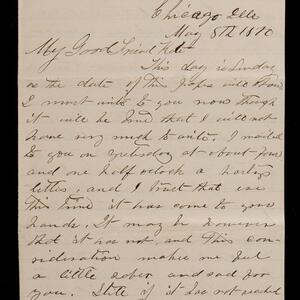 Chicago Ills
May 8th 1870
My Good Friend
This day is Sunday
as the date of this paper will show
I must write to you now though
it will be that I will not
have very much to write. I mailed
to you on yesterday at about four
and one half oclock a hasty
letter, and I trust that ere
this time it has come to your
hands. It may be however
that it has not, and this con-
sideration makes me feel
a little sober and sad for
you. Still if it has not reached